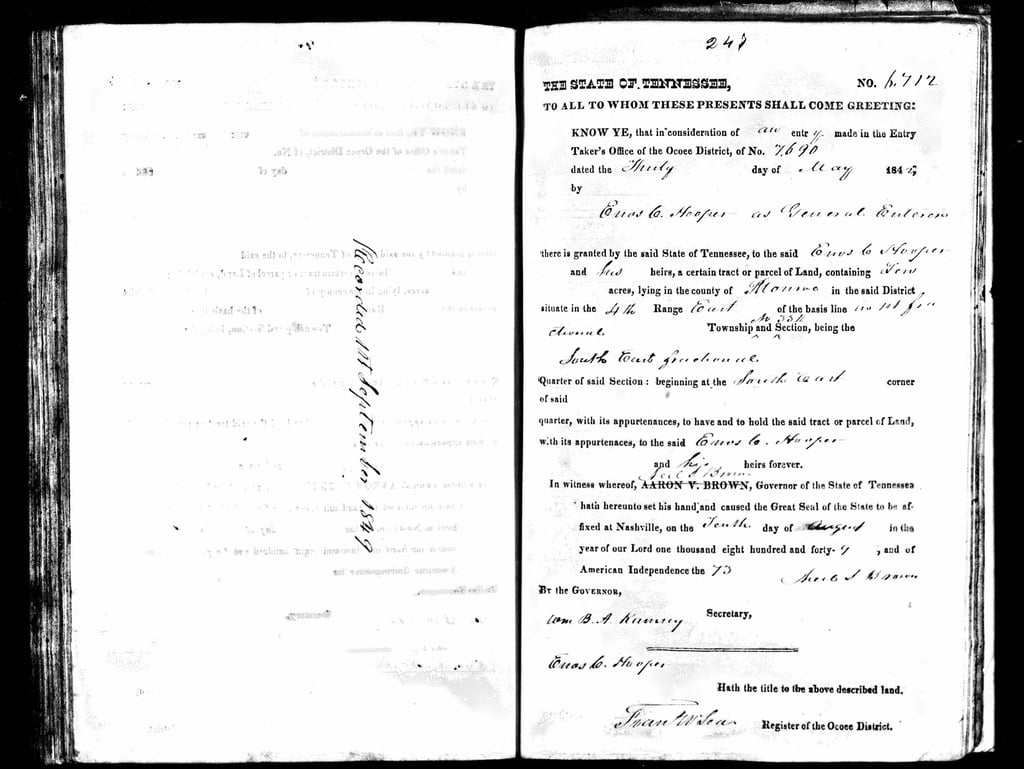 Recorded 1st September 1849
247
THE STATE OF TENNESSEE, NO. 6.712
TO ALL TO WHOM THESE PRESENTS SHALL COME GREETING:
KNOW YE, that in consideration of an entry made in the Entry
Taker's Office of the Ocoee District, of No. 7690
dated the day of May 184
by
Enos C. Hooper as General Enterer
there is granted by the said State of Tennessee, to the said Enos C Hooper
and his heirs, a certain tract or parcel of Land, containing Ten
acres, lying in the county of Monroe in the said District
situate in the 4th Range East of the basis line in 1st fra
No 33d
ctional Township and Section, being the
South East fractional
Quarter of said Section: beginning at the South East corner
of said
quarter, with its appurtenances, to have and to hold the said tract or parcel of Land,
with its appurtenaces, to the said Enos C. Hooper
and his heirs forever.
Neill S Brown
In witness whereof, AARON V. BROWN, Governor of the State of Tennessee
hath hereunto set his hand and caused the Great Seal of the State to be af-
fixed at Nashville, on the Tenth day of August in the
year of our Lord one thousand eight hundred and forty-9 , and of
American Independence the 73
Neill S Brown
BY the GOVERNOR,
Wm B. A. Ramsey Secretary,
Enos C. Hooper
Hath the title to the above described land.
Register of the Ocoee District.